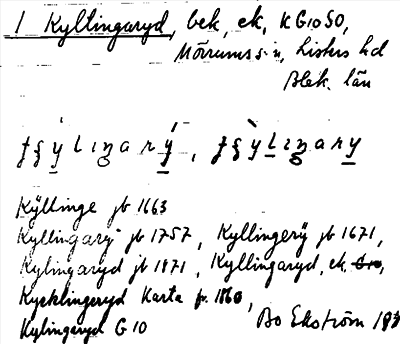 1 Kyllingaryd, bek, ek, KG10 SO,
Mörrums sn, Listers hd
Blek. län
Kÿllinge jb 1663
Kyllingarÿ jb 1757, Kyllingerÿ jb 1671,
Kylingaryd jb 1871, Kyllingaryd, ek.
Kycklingeryd Karta fr. 1860,
Kylingaryd G10
Bo Ekström